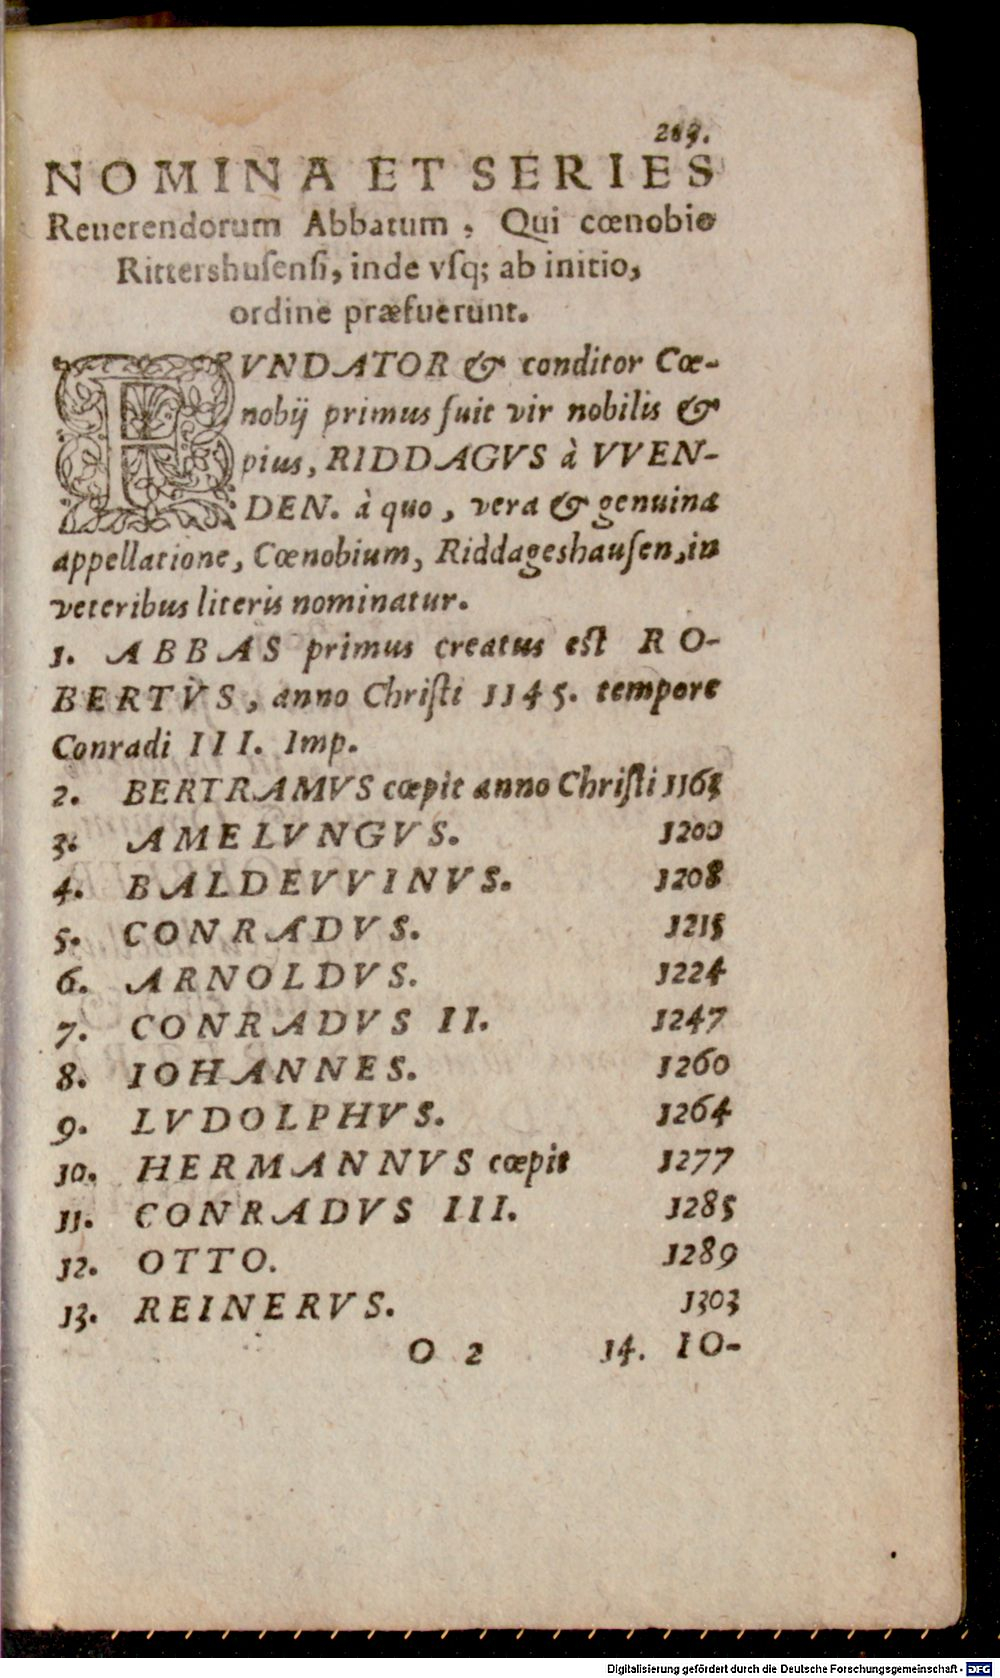 219.
NOMINA ET SERIES
Reuerendorum Abbatum, Qui cœnobio
Rittershusensi, inde vsq; ab initio,
ordine præfuerunt.
FVNDATOR & conditor Cœ-
nobij primus fuit vir nobilis &
pius, RIDDAGVS à VVEN-
DEN. à quo, vera & genuina
appellatione, Cœnobium, Riddageshausen, in
veteribus literis nominatur.
1. ABBAS primus creatus est RO-
BERTVS, anno Christi 1145. tempore
Conradi III. Imp.
2. BERTRAMVS cœpit anno Christi 1163
3. AMELVNGVS. 1200
4. BALDEVVINVS. 1208
5. CONRADVS. 1215
6. ARNOLDVS. 1224
7. CONRADVS II. 1247
8. IOHANNES. 1260
9. LVDOLPHVS. 1264
10. HERMANNVS cœpit 1277
11. CONRADVS III. 1285
12. OTTO. 1289
13. REINERVS. 1303
O 2 14. IO-
Digitalisierung gefördert durch die Deutsche Forschungsgemeinschaft - DFG